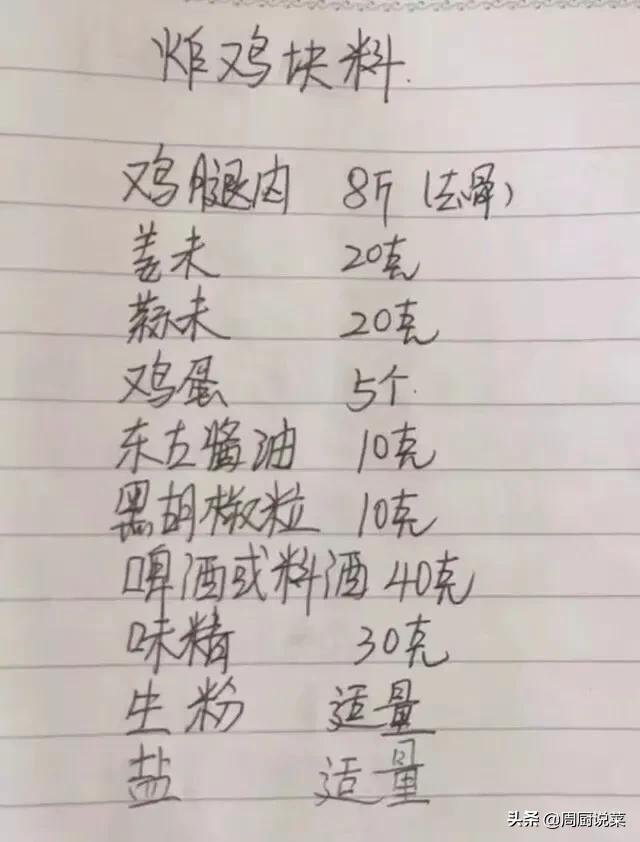 炸鸡块料.
鸡腿肉 8斤（去骨）
姜末 20克
蒜末 20克
鸡蛋 5个
东古酱油 10克
黑胡椒粒 10克
啤酒或料酒 40克
味精 30克
生粉 适量
盐 适量
头条 @周厨说菜